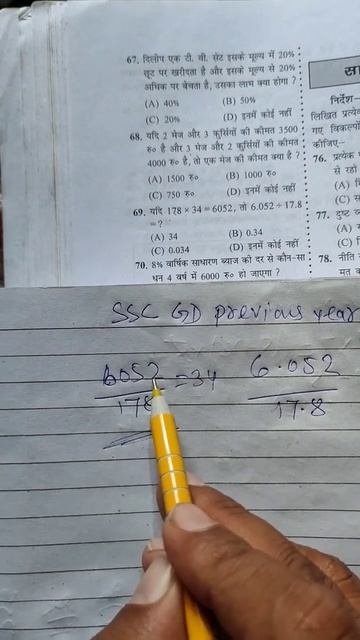 67. दिलीप एक टी. वी. सेट इसके मूल्य में 20%
छूट पर खरीदता है और इसके मूल्य से 20%
अधिक पर बेचता है, उसका लाभ क्या होगा ?
(A) 40% (B) 50%
(C) 20% (D) इनमें कोई नहीं
68. यदि 2 मेज और 3 कुर्सियों की कीमत 3500
रु० है और 3 मेज और 2 कुर्सियों की कीमत
4000 रु० है, तो एक मेज की कीमत क्या है ?
(A) 1500 रु० (B) 1000 रु०
(C) 750 रु० (D) इनमें कोई नहीं
69. यदि 178 × 34 = 6052, तो 6.052 ÷ 17.8
= ?
(A) 34 (B) 0.34
(C) 0.034 (D) इनमें कोई नहीं
70. 8% वार्षिक साधारण ब्याज की दर से कौन-सा
धन 4 वर्ष में 6000 रु० हो जाएगा ?
सा
निर्देश-
लिखित प्रत्ये
गए विकल्पों
कीजिए-
76. प्रत्येक
से रहो
(A)
(C) स
77. दुष्ट
(A)
(C)
78. नीति
मत व
SSC GD previous year
6052 = 34 6.052
178 17.8